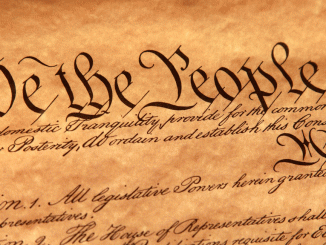 We the People
domestic Tranquility, provide for the common
Posterity, do ordain and establish this Cons
1. All legislative Powers herein granted
presentatives.
2. The House of Representatives shall
requisite for